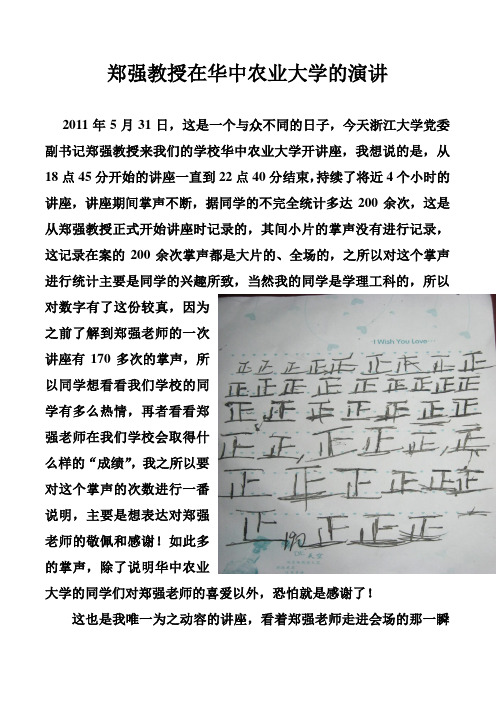 郑强教授在华中农业大学的演讲
2011 年 5 月 31 日，这是一个与众不同的日子，今天浙江大学党委
副书记郑强教授来我们的学校华中农业大学开讲座，我想说的是，从
18 点 45 分开始的讲座一直到 22 点 40 分结束，持续了将近 4 个小时的
讲座，讲座期间掌声不断，据同学的不完全统计多达 200 余次，这是
从郑强教授正式开始讲座时记录的，其间小片的掌声没有进行记录，
这记录在案的 200 余次掌声都是大片的、全场的，之所以对这个掌声
进行统计主要是同学的兴趣所致，当然我的同学是学理工科的，所以
对数字有了这份较真，因为
之前了解到郑强老师的一次
讲座有 170 多次的掌声，所
以同学想看看我们学校的同
学有多么热情，再者看看郑
强老师在我们学校会取得什
么样的“成绩”，我之所以要
对这个掌声的次数进行一番
说明，主要是想表达对郑强
老师的敬佩和感谢！如此多
的掌声，除了说明华中农业
大学的同学们对郑强老师的喜爱以外，恐怕就是感谢了！
这也是我唯一为之动容的讲座，看着郑强老师走进会场的那一瞬
I Wish You Love
正 正 正 正 正 正 正 正 正
正 正 正 正 正 正 正 正 正
正 正 正 正 正 正 正
正 正 正 正 正 正
正 正 正 正 正 正
正 190 正 正 正